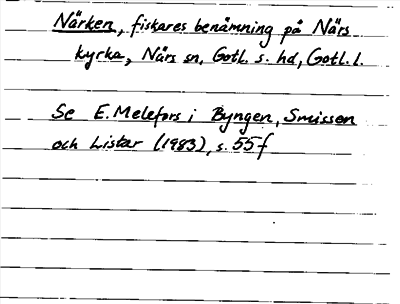 Närken, fiskares benämning på Närs
kyrka, Närs sn, Gotl. s. hd, Gotl. l.
Se E. Melefors i Byngen, Smissen
och Listar (1983), s. 55f